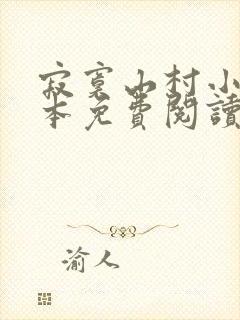 寂寞山村小
本免費閱讀
渝人